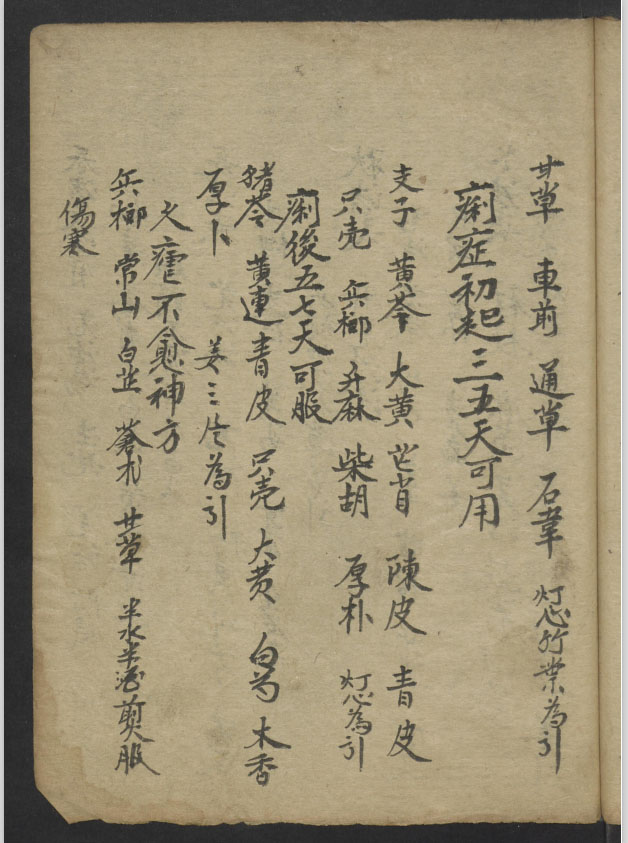 甘草 車前 通草 石韋 灯心竹業為引
痢症初起三五天可用
支子 黄芩 大黄 芒肖 陳皮 青皮
只壳 兵榔 升麻 柴胡 厚朴 灯心為引
痢後五七天可服
猪苓 黄連 青皮 只壳 大黄 白芍 木香
厚卜 姜三片為引
久瘧不愈神方
兵榔 常山 白芷 蒼术 甘草 半水半酒煎服
傷寒